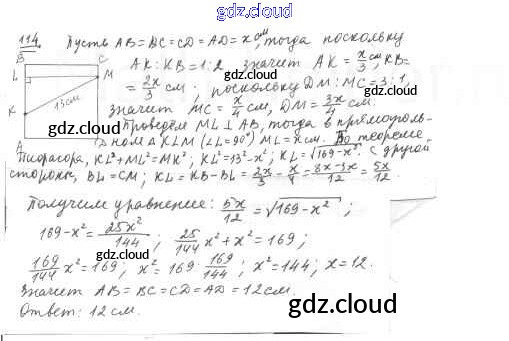 gdz.cloud
114 Пусть AB=BC=CD=AD=x см, тогда поскольку
gdz.cloud
B C
AK:KB=1:2, значит AK = x/3 см, KB=
L M
= 2x/3 см; поскольку DM:MC=3:1,
13см
K
gdz.cloud
значит MC = x/4 см, DM = 3x/4 см.
gdz.cloud
Проведём ML⊥AB, тогда в прямоуголь-
A
ном ΔKLM (∠L=90°) ML=x см. По теореме
Пифагора, KL²+ML²=MK²; KL²=13²-x²; KL=√169-x². С другой
стороны, BL=CM; KL=KB-BL= 2x/3 - x/4 = 8x-3x/12 = 5x/12.
gdz.cloud
Получим уравнение: 5x/12 = √169-x²;
169-x² = 25x²/144; 25/144 x²+x²=169;
gdz.cloud
169/144 x²=169; x²=169·169/144; x²=144; x=12.
gdz.cloud
Значит AB=BC=CD=AD=12см.
gdz.cloud
Ответ: 12см.
gdz.cloud